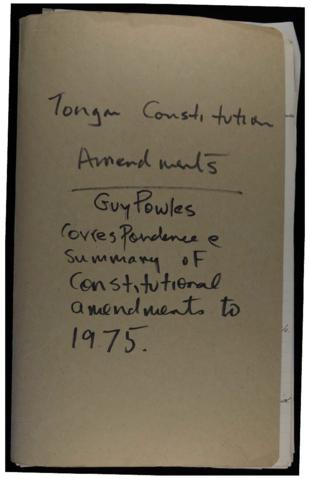 Tongan Constitution
Amendments
Guy Powles
Correspondence e
Summary of
Constitutional
amendments to
1975.